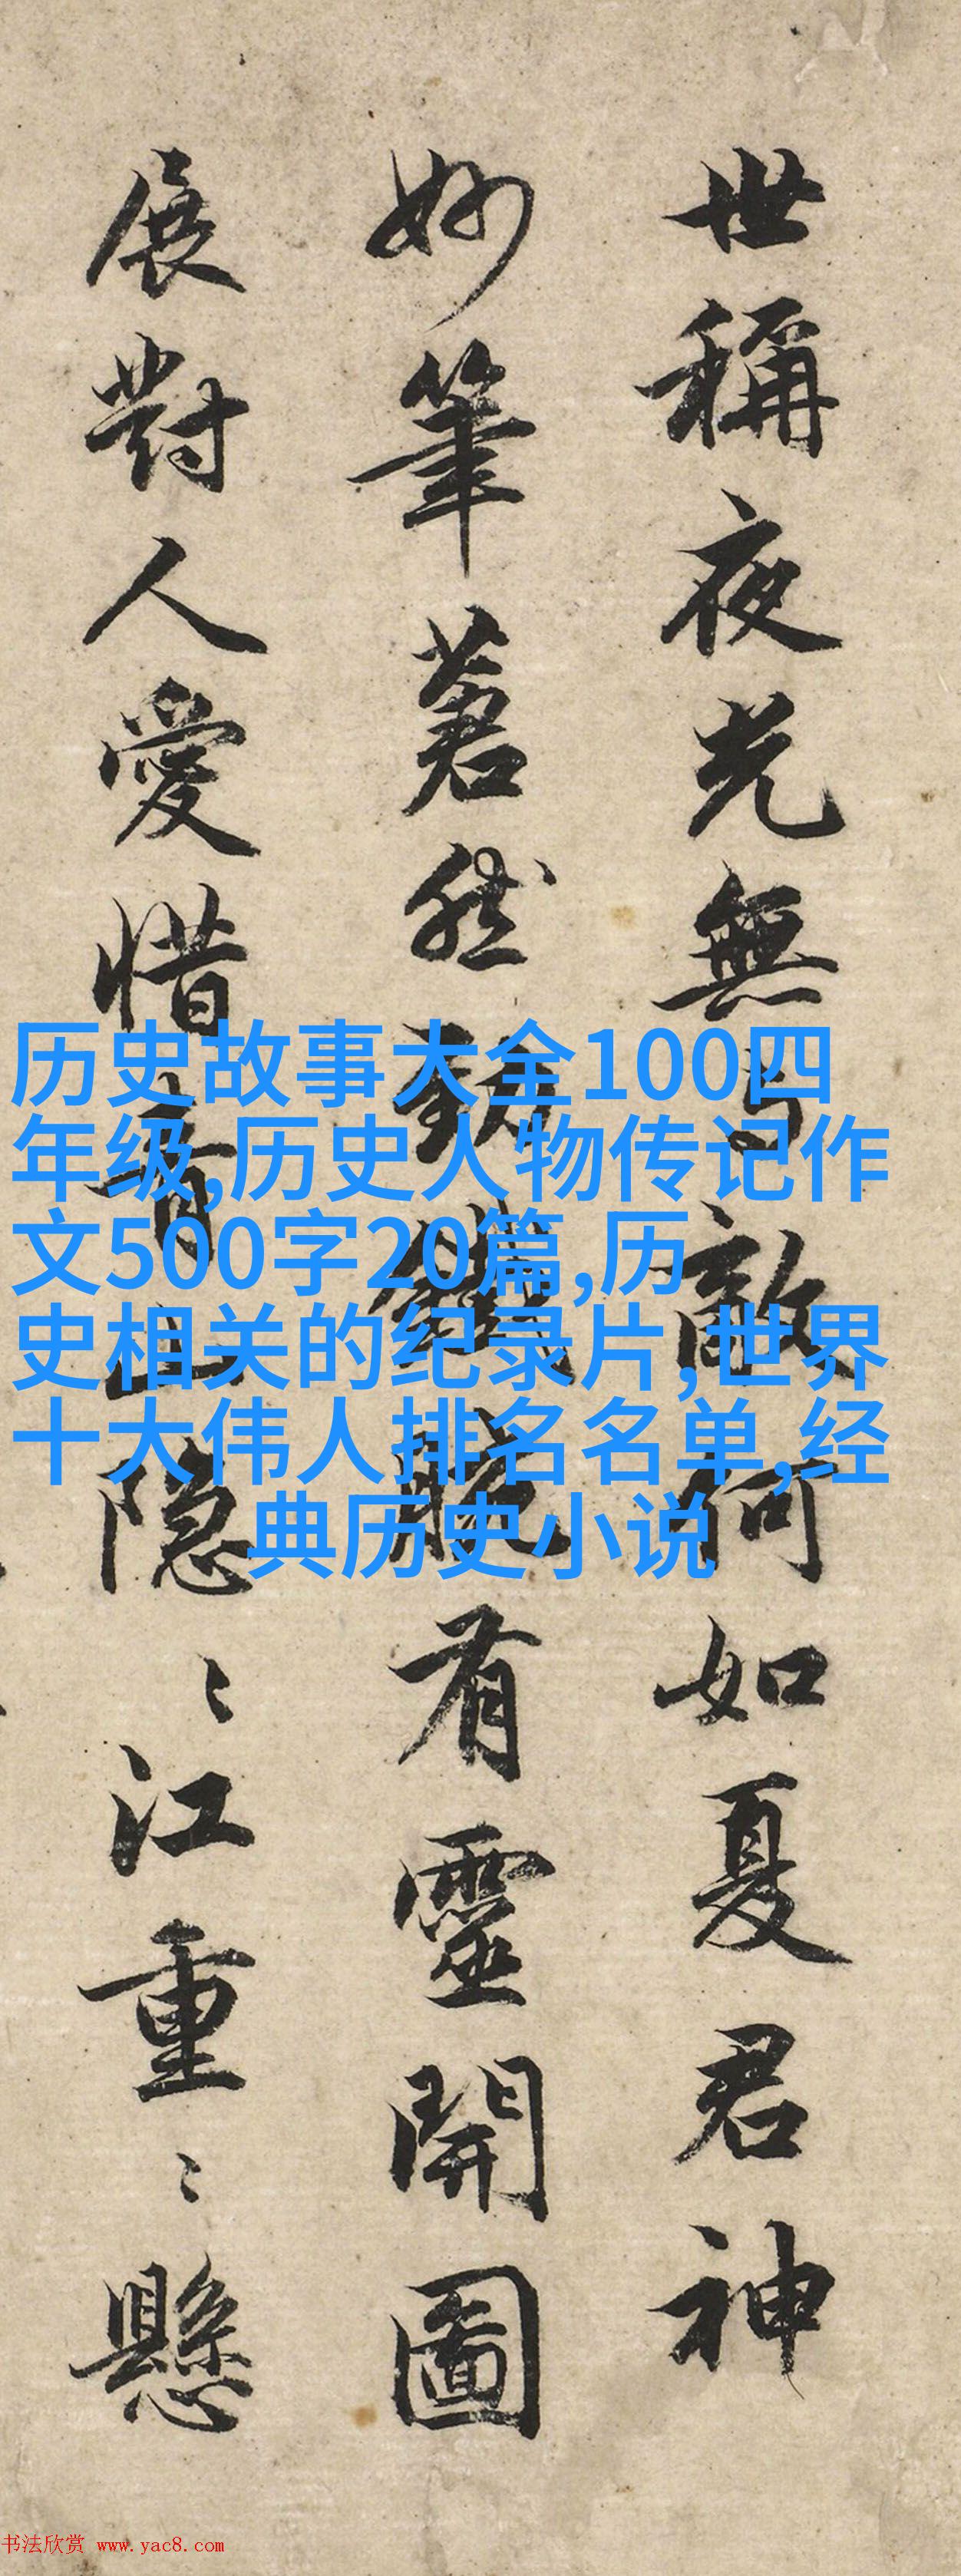 世稱夜光無与敵何如夏君神
妙筆然有靈開圖
展對人愛惜青山隐〻江重〻懸
历史故事大全100四
年级,历史人物传记作
文500字20篇,历
史相关的纪录片,世界
十大伟人排名名单,经
典历史小说
书法欣赏 www.yac8.com